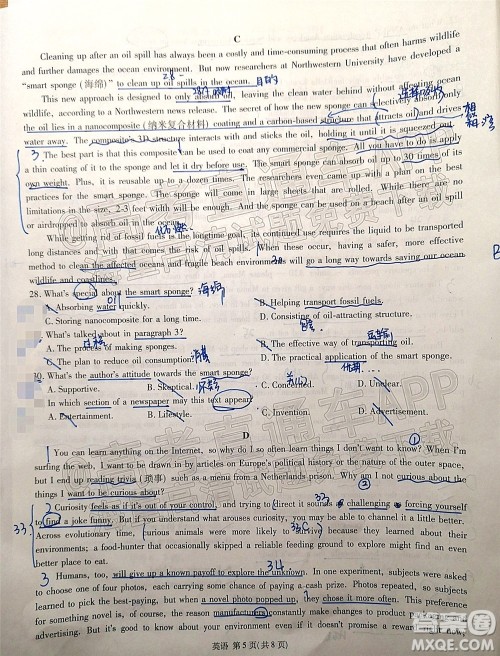 C
Cleaning up after an oil spill has always been a costly and time-consuming process that often harms wildlife
and further damages the ocean environment. But now researchers at Northwestern University have developed a
"smart sponge (海绵)" to clean up oil spills in the ocean. 目的
This new approach is designed to only absorb oil, leaving the clean water behind without affecting ocean
wildlife, according to a Northwestern news release. The secret of how the new sponge can selectively absorb only
the oil lies in a nanocomposite (纳米复合材料) coating and a carbon-based structure that attracts oil and drives
water away. The composite's 3D structure interacts with and sticks the oil, holding it until it is squeezed out.
3 The best part is that this composite can be used to coat any commercial sponge. All you have to do is apply
a thin coating of it to the sponge and let it dry before use. The smart sponge can absorb oil up to 30 times of its
own weight. Plus, it is reusable up to a dozen times. The researchers even came up with a plan of best
practices for the smart sponge. The sponge will come in large sheets that are rolled. While there are no
limitations in size, 2-3 feet width will be enough. And the sponge can be used on a beach after an oil spill
or airdropped to absorb oil in the ocean.
While getting rid of fossil fuels is the longtime goal, its continued use requires the liquid to be transported
long distances and with that comes the risk of oil spills. When these occur, having a safer, more effective
method to clean the affected oceans and fragile beach environments will go a long way towards saving our ocean
wildlife and coastlines.
28. What's special about the smart sponge? 海绵
A. Absorbing water quickly. oil
B. Helping transport fossil fuels.
C. Storing nanocomposite for a long time.
D. Consisting of oil-attracting structure.
29. What's talked about in paragraph 3?
A. The process of making sponges.
B. The effective way of transporting oil.
C. The plan to reduce oil consumption?
D. The practical application of the smart sponge.
30. What's the author's attitude towards the smart sponge?
A. Supportive.
B. Skeptical. 怀疑
C. Concerned.
D. Unclear.
In which section of a newspaper may this text appear?
A. Entertainment.
B. Lifestyle.
C. Invention.
D. Advertisement.
D
1 You can learn anything on the Internet, so why do I so often learn things I don't want to know? When I'm
surfing the web, I want to be drawn in by articles on Europe's political history or the nature of the outer space,
but I end up reading trivia (琐事) such as a menu from a Netherlands prison. Why am I not curious about the
things I want to be curious about?
2 Curiosity feels as if it's out of your control, and trying to direct it sounds as challenging as forcing yourself
to find a joke funny. But if you understand what arouses curiosity, you may be able to channel it a little better.
Across evolutionary time, curious animals were more likely to survive because they learned about their
environments; a food-hunter that occasionally skipped a reliable feeding ground to explore might find an even
better place to eat.
3 Humans, too, will give up a known payoff to explore the unknown. In one experiment, subjects were asked
to choose one of three photos, each carrying some chance of paying a cash prize. Photos repeated, so subjects
learned to pick the best-paying, but when a novel photo popped up, they chose it more often. This preference
for something novel is, of course, the reason manufacturers constantly make changes to products
advertising. But it's good to know about your environment even if it doesn't
英语 第5页(共8页)